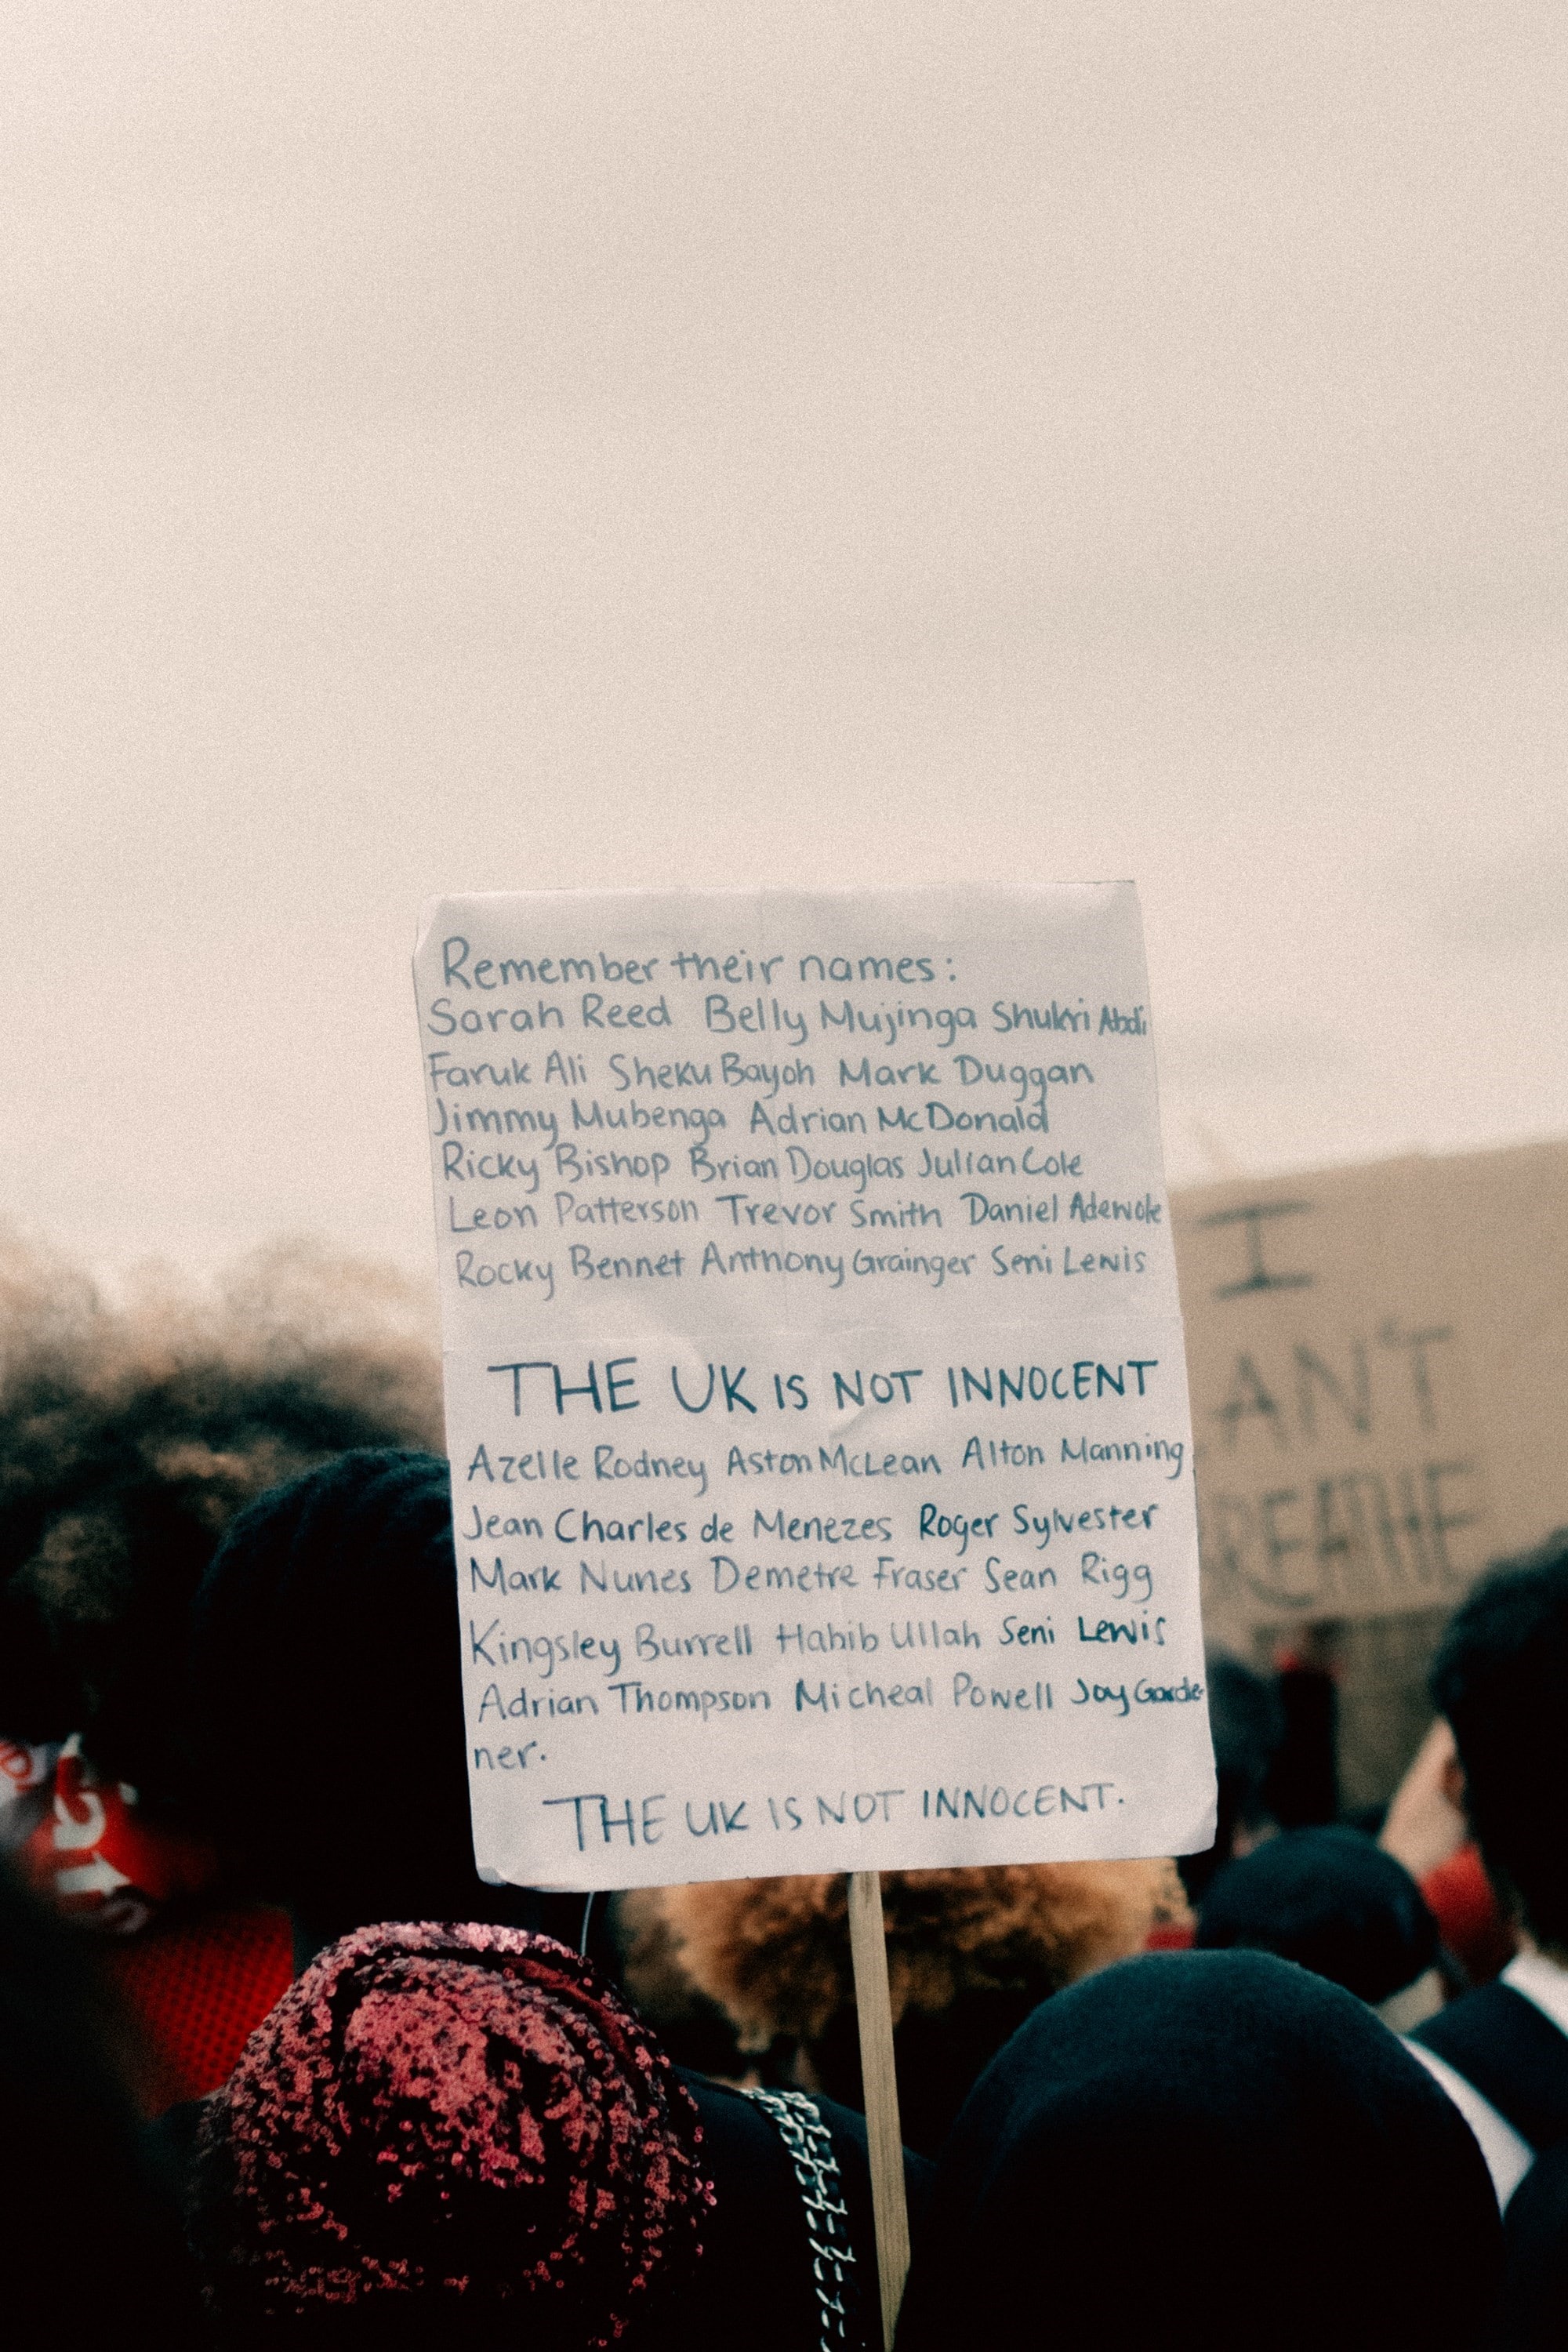 Remember their names:
Sarah Reed Belly Mujinga Shukri Abdi
Faruk Ali Sheku Bayoh Mark Duggan
Jimmy Mubenga Adrian McDonald
Ricky Bishop Brian Douglas Julian Cole
Leon Patterson Trevor Smith Daniel Adewole
Rocky Bennet Anthony Grainger Seni Lewis
THE UK IS NOT INNOCENT
Azelle Rodney Aston McLean Alton Manning
Jean Charles de Menezes Roger Sylvester
Mark Nunes Demetre Fraser Sean Rigg
Kingsley Burrell Habib Ullah Seni Lewis
Adrian Thompson Micheal Powell Joy Garde-
ner.
THE UK IS NOT INNOCENT.
I
ANT'T
REATHE